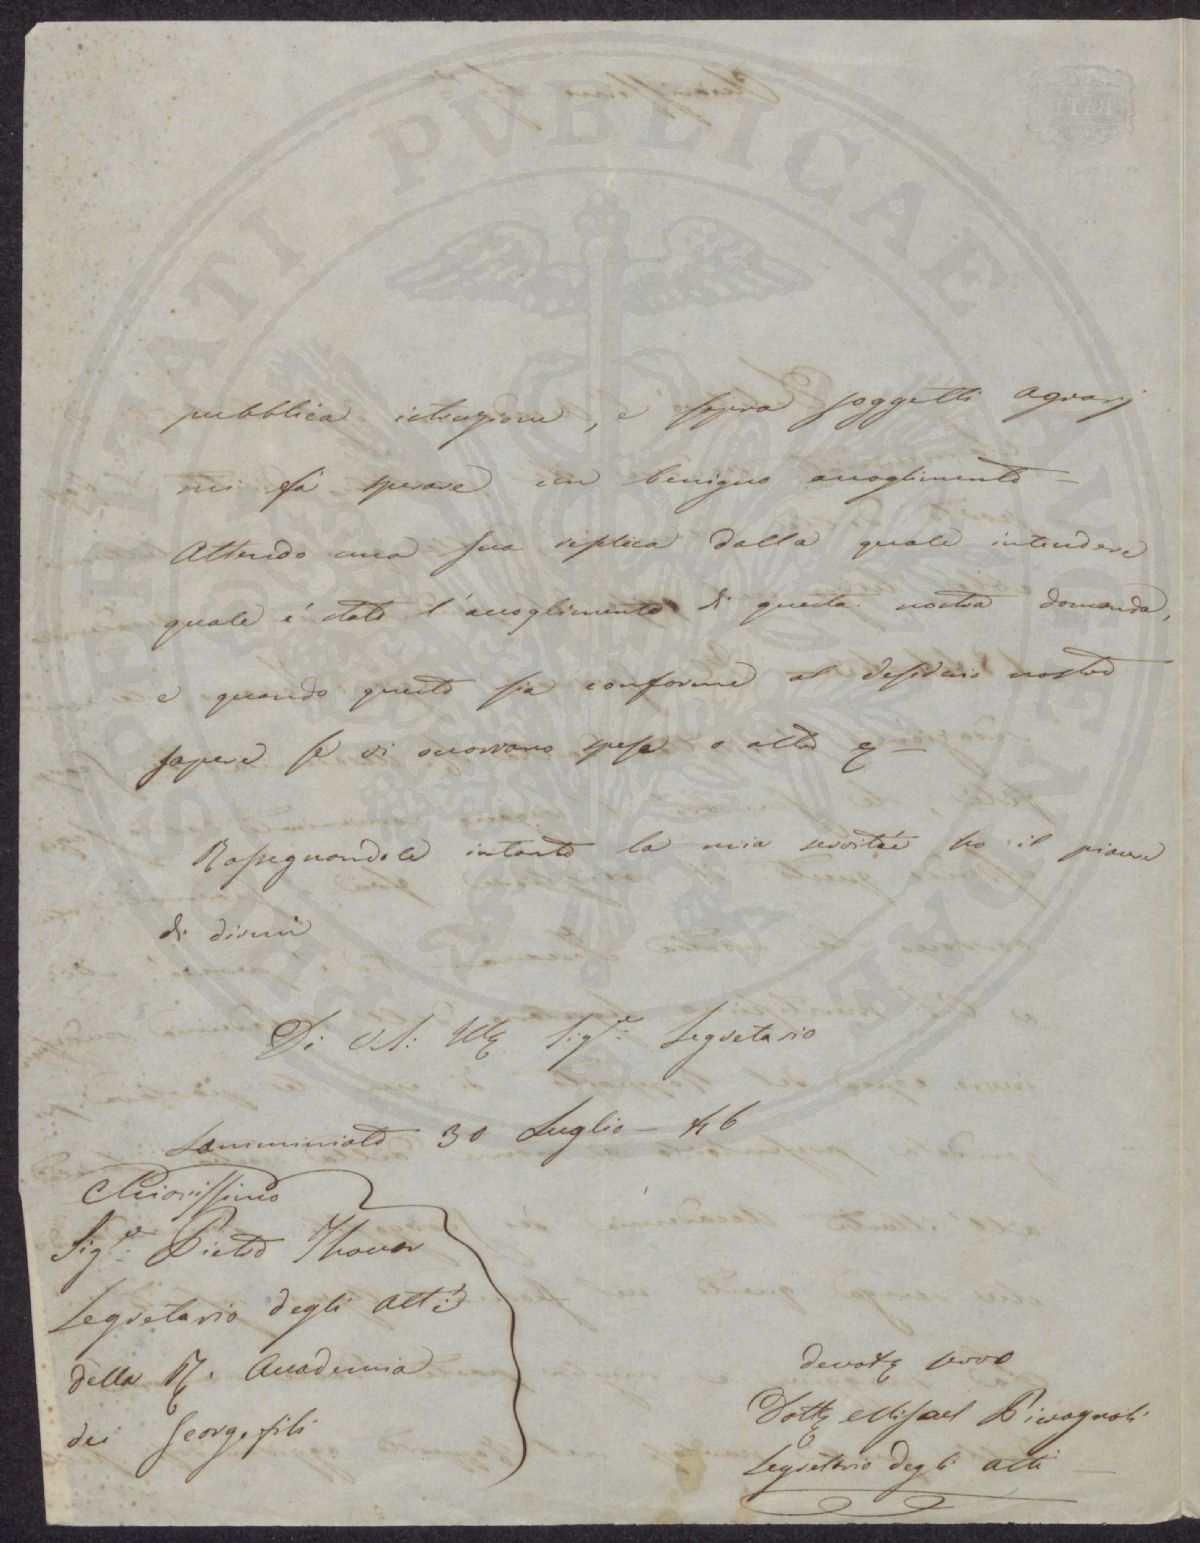 pubblica istruzione, e sopra soggetti agrarj
mi fà sperare un benigno accoglimento —
Attendo una sua replica dalla quale intendere
quale é stato l'accoglimento di questa nostra domanda,
e quando questo sia conforme al desiderio nostro
sapere se vi occorrano spese o altro
Rassegnandole intanto la mia servitù ho il piacere
di dirmi
Di V.S. Sigre: Segretario
Samminiato 30 Luglio — 46
Chiarissimo
Sigre: Pietro Thouar
Segretario degli atti
della R. Accademia
dei Georgofili
Dott Misael Pieragnoli
Segretario degli atti —
PROSPERITATI PUBLICAE AUGENDAE